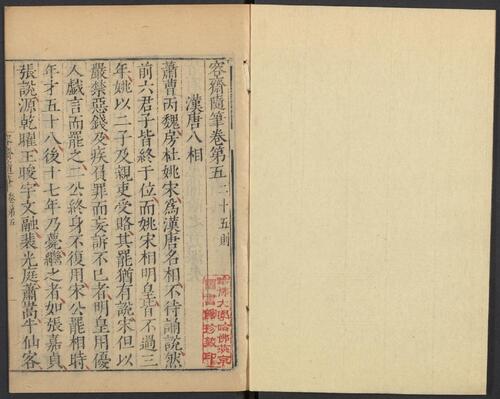 容齋隨筆卷第五 二十五則
漢唐八相
蕭曹丙魏房杜姚宋爲漢唐名相不待誦說然
前六君子皆終于位而姚宋相明皇皆不過三
年姚以二子及親吏受賂其罷猶有說宋但以
嚴禁惡錢及疾負罪而妄訴不已者明皇用優
人戲言而罷之二公終身不復用宋公罷相時
年才五十八後十七年乃薨繼之者如張嘉貞
張說源乾曜王晙宇文融裴光庭蕭嵩牛仙客